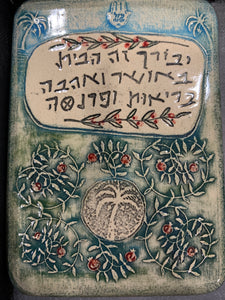 יבורך זה הבית
באושר ואהבה
בריאות ופרנסה